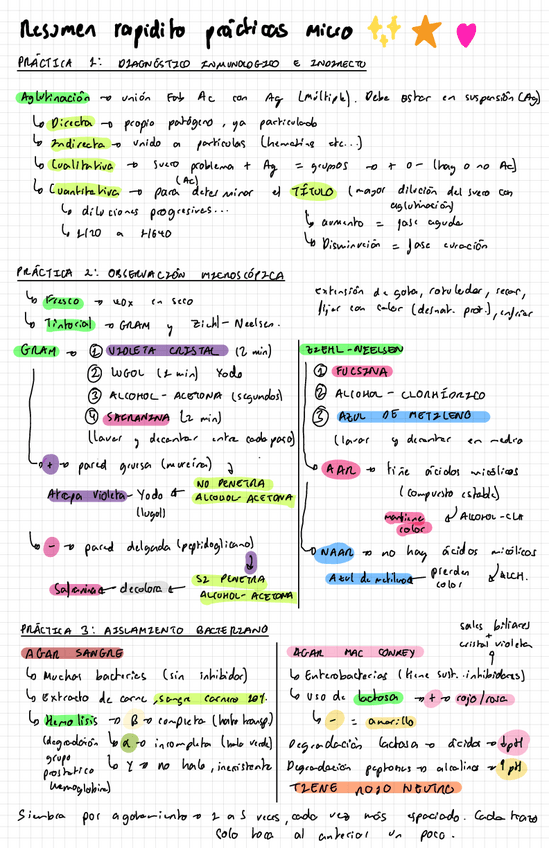 Resumen rapidito prácticas micro
PRÁCTICA 1: DIAGNÓSTICO INMUNOLOGICO E INDIRECTO
Aglutinación → unión Fab Ac con Ag (múltiple). Debe estar en suspensión (Ag)
↳ Directa → propio patógeno, ya particulado
↳ Indirecta → unido a partículas (hematíes etc...)
↳ Cualitativa → suero problema + Ag = grupos → + o - (hay o no Ac)
(Ac)
↳ Cuantitativa → para determinar el TÍTULO (mayor dilución del suero con aglutinación)
↳ diluciones progresivas...
↳ 1/20 a 1/640
↳ aumento = fase aguda
↳ Disminución = fase curación
PRÁCTICA 2: OBSERVACIÓN MICROSCÓPICA
↳ Fresco → 40x en seco
↳ Tintorial → GRAM y Ziehl-Neelsen.
extensión de gota, rotulador, secar,
fijar con calor (desnat. prot.), enfriar
GRAM → ① VIOLETA CRISTAL (2 min)
② LUGOL (1 min) Yodo
③ ALCOHOL-ACETONA (segundos)
④ SAFRANINA (2 min)
(lavar y decantar entre cada paso)
↳ + → pared gruesa (mureína)
NO PENETRA
ALCOHOL-ACETONA
Atrapa violeta - Yodo
(lugol)
↳ - → pared delgada (peptidoglicano)
SI PENETRA
ALCOHOL-ACETONA
decolora
Safranina
ZIEHL-NEELSEN
① FUCSINA
② ALCOHOL-CLORHÍDRICO
③ AZUL DE METILENO
(lavar y decantar en medio
↳ AAR → tiñe ácidos micólicos
(compuesto estable)
mantiene color
ALCOHOL-CLH
↳ NAAR → no hay ácidos micólicos
Azul de metileno ← pierden color
ALCH.
PRÁCTICA 3: AISLAMIENTO BACTERIANO
AGAR SANGRE
↳ Muchas bacterias (sin inhibidor)
↳ Extracto de carne, sangre carnero 10%.
↳ Hemolisis → β → completa (halo transp.)
(degradación grupo prostético hemoglobina)
↳ α → incompleta (halo verde)
↳ γ → no halo, inexistente
sales biliares
+
cristal violeta
AGAR MAC CONKEY
↳ Enterobacterias (tiene sust. inhibidores)
↳ Uso de lactosa → + → rojo/rosa
↳ - = amarillo
Degradación lactosa → ácidos → ↓pH
Degradación peptonas → alcalinos → ↑pH
TIENE ROJO NEUTRO
Siembra por agotamiento → 2 a 5 veces, cada vez más espaciado. Cada trazo
solo toca al anterior un poco.